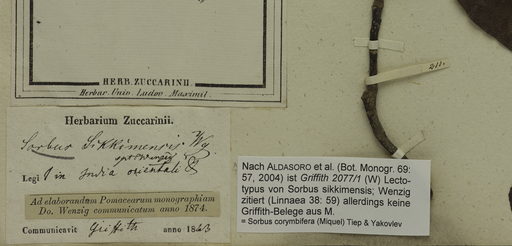 HERB. ZUCCARINII.
Herbar. Univ. Ludov. Maximil.
211.
Herbarium Zuccarinii.
Sorbus Sikkimensis Wg
Legi in India orientali
Ad elaborandum Pomacearum monographiam
Do. Wenzig communicatum anno 1874.
Communicavit Griffith anno 1843
Nach ALDASORO et al. (Bot. Monogr. 69:
57, 2004) ist Griffith 2077/1 (W) Lecto-
typus von Sorbus sikkimensis; Wenzig
zitiert (Linnaea 38: 59) allerdings keine
Griffith-Belege aus M.
= Sorbus corymbifera (Miquel) Tiep & Yakovlev